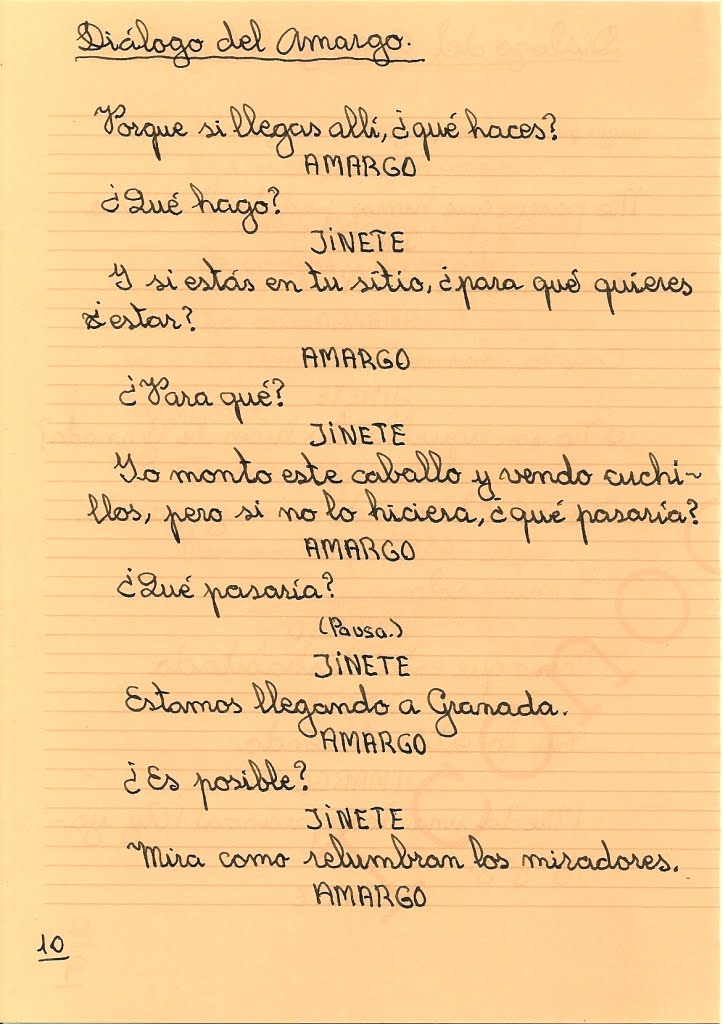 Diálogo del Amargo.
Porque si llegas allí, ¿qué haces?
AMARGO
¿Qué hago?
JiNETE
Y si estás en tu sitio, ¿para qué quieres
¿estar?
AMARGO
¿Para qué?
JiNETE
Yo monto este caballo y vendo cuchi-
llos, pero si no lo hiciera, ¿qué pasaría?
AMARGO
¿Qué pasaría?
(Pausa.)
JiNETE
Estamos llegando a Granada.
AMARGO
¿Es posible?
JiNETE
Mira como relumbran los miradores.
AMARGO
10